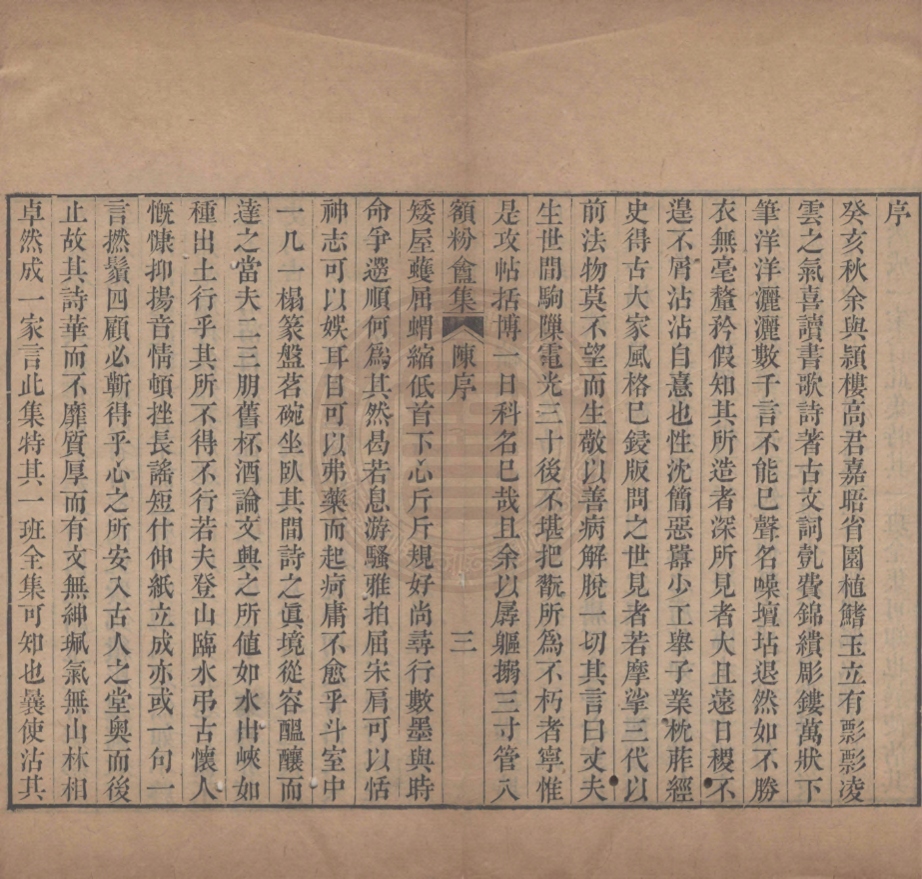 序
癸亥秋余與潁樓高君嘉晤省園植鰭玉立有影影凌
雲之氣喜讀書歌詩著古文詞㓨費錦繢彫鏤萬狀下
筆洋洋灑灑數千言不能已聲名噪壇坫退然如不勝
衣無毫釐矜假知其所造者深所見者大且遠日稷不
遑不屑沾沾自憙也性沈簡惡囂少工舉子業枕葄經
史得古大家風格已鋟版問之世見者若摩挲三代以
前法物莫不望而生敬以善病解脫一切其言曰丈夫
生世間駒隟電光三十後不堪把翫所為不朽者寧惟
是攻帖括博一日科名已哉且余以孱軀搦三寸管入
額粉盦集 陳序 三
矮屋蠖屈蝟縮低首下心斤斤規好尚尋行數墨與時
命爭遝順何為其然曷若息游騷雅拍屈宋肩可以恬
神志可以娛耳目可以弗藥而起疴庸不愈乎斗室中
一几一榻篆盤茗碗坐臥其間詩之眞境從容醞釀而
達之當夫二三朋舊杯酒論文興之所値如水出峽如
種出土行乎其所不得不行若夫登山臨水弔古懷人
慨慷抑揚音情頓挫長謠短什伸紙立成亦或一句一
言撚鬚四顧必蘄得乎心之所安入古人之堂奧而後
止故其詩華而不靡質厚而有文無紳珮氣無山林相
卓然成一家言此集特其一班全集可知也曩使沾其